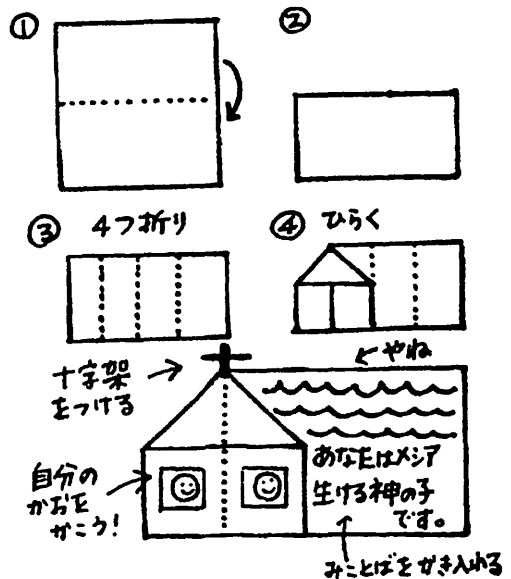 ①
②
③ 4つ折り
④ ひらく
十字架
をつける
やね
自分の
かおを
かこう!
あなたはメシア
生ける神の子
です。
みことばをかき入れる